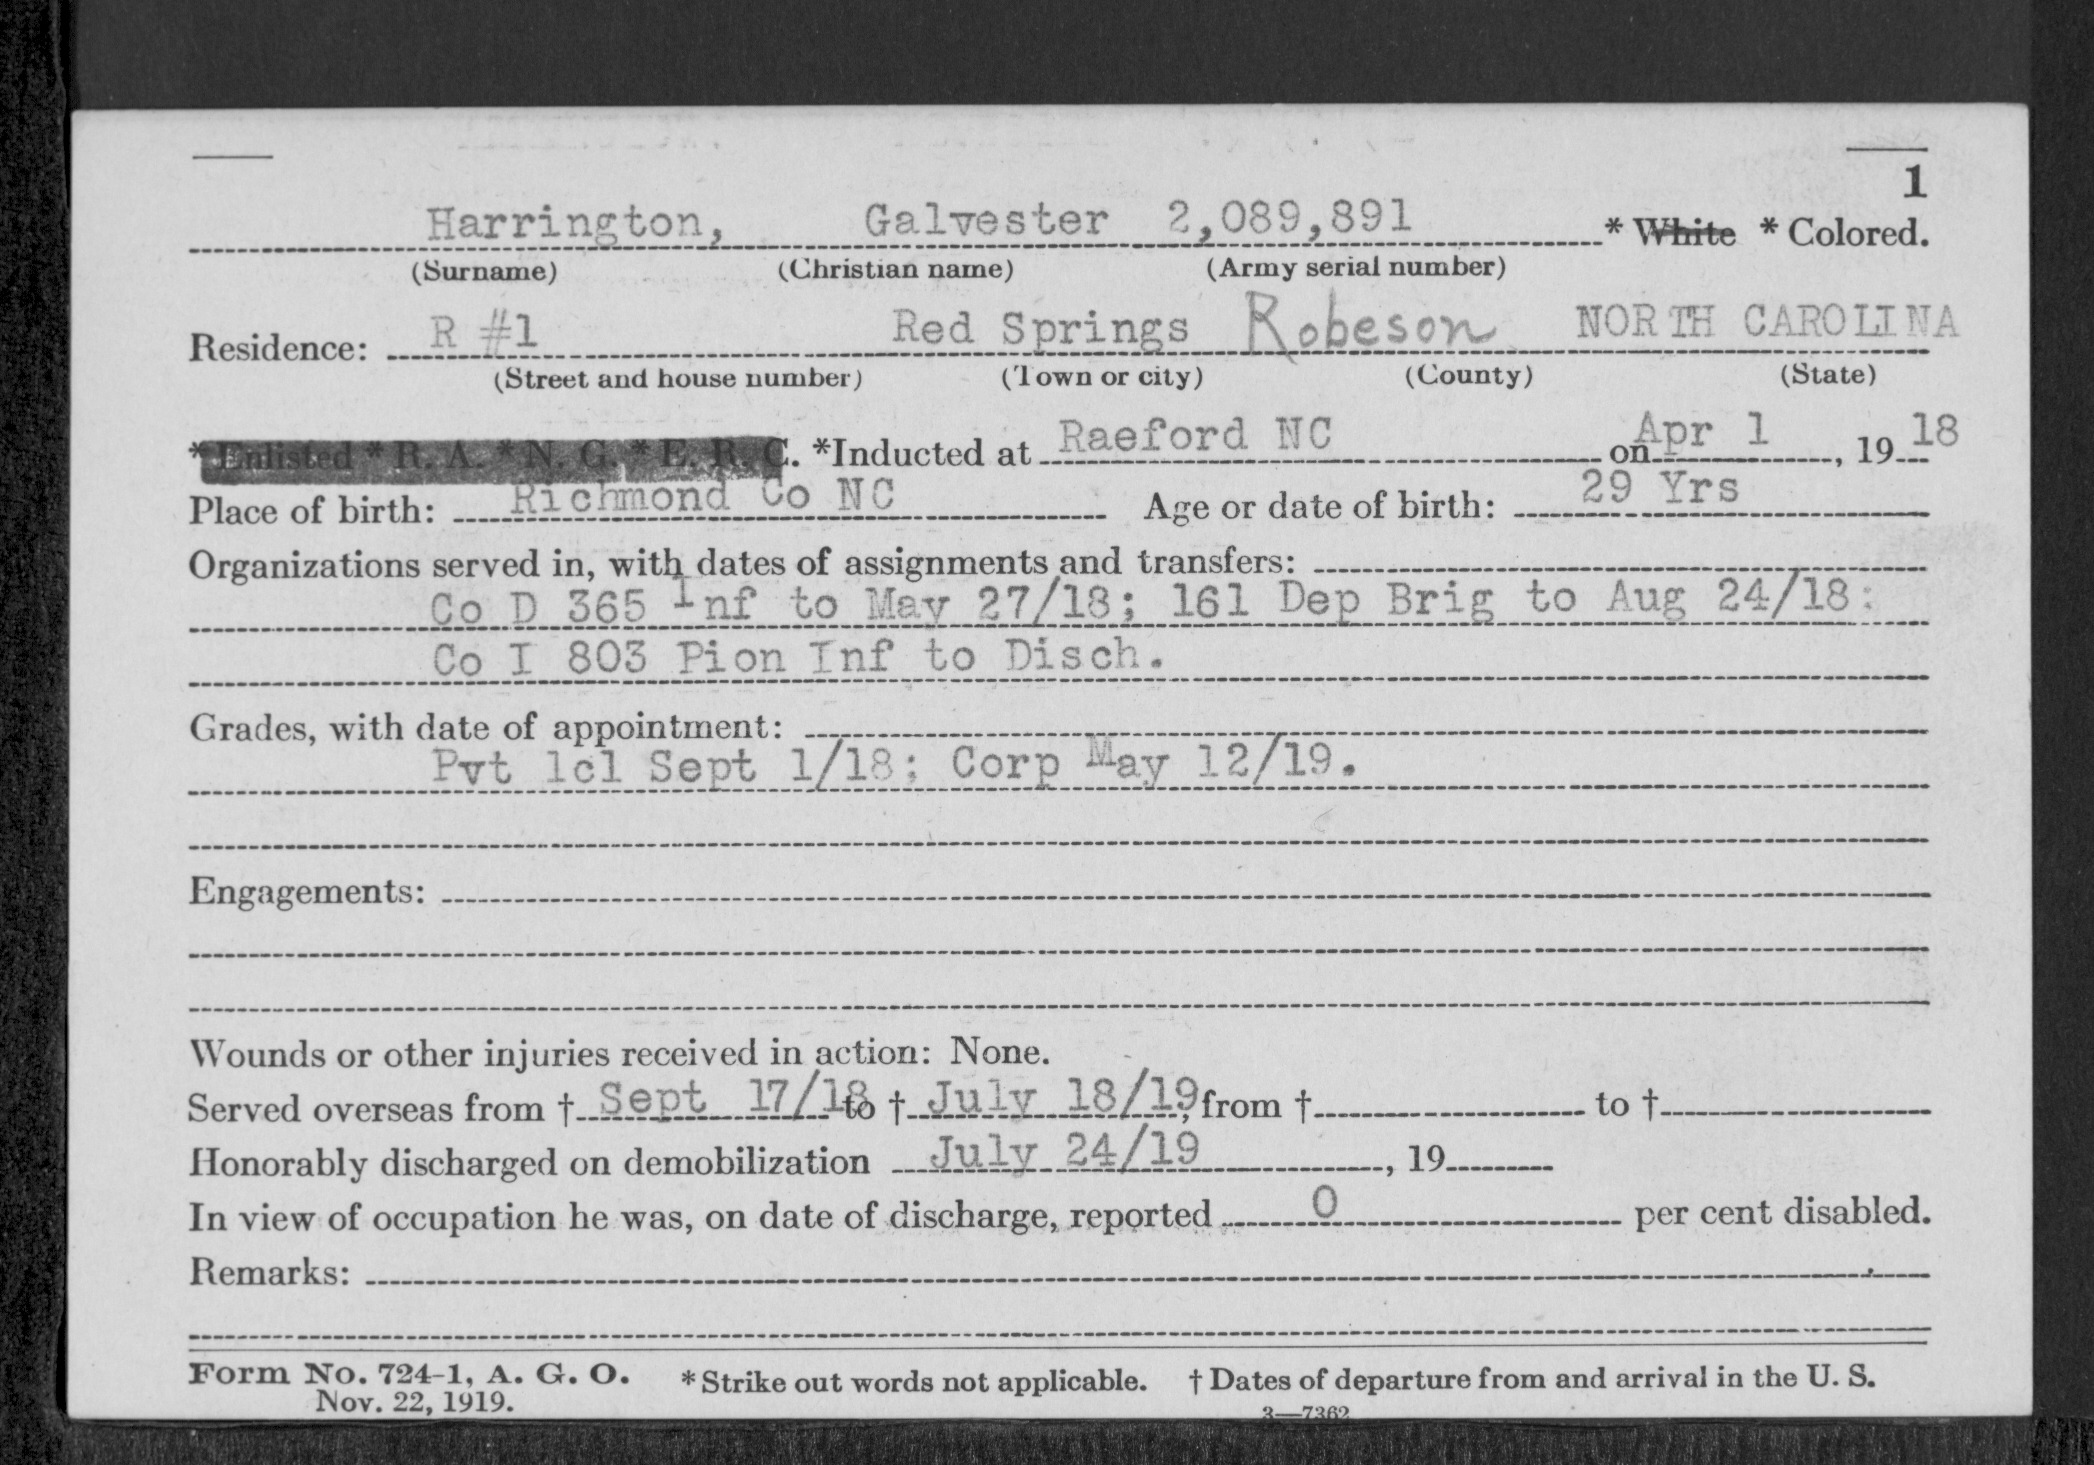 1
Harrington, Galvester 2,089,891 * White * Colored.
(Surname) (Christian name) (Army serial number)
Residence: R #1 Red Springs Robeson NORTH CAROLINA
(Street and house number) (Town or city) (County) (State)
* Enlisted * R. A. * N. G. * E. R. C. *Inducted at Raeford NC on Apr 1, 1918
Place of birth: Richmond Co NC Age or date of birth: 29 Yrs
Organizations served in, with dates of assignments and transfers:
Co D 365 Inf to May 27/18; 161 Dep Brig to Aug 24/18:
Co I 803 Pion Inf to Disch.
Grades, with date of appointment:
Pvt 1cl Sept 1/18; Corp May 12/19.
Engagements:
Wounds or other injuries received in action: None.
Served overseas from † Sept 17/18 to † July 18/19, from † to †
Honorably discharged on demobilization July 24/19, 19
In view of occupation he was, on date of discharge, reported 0 per cent disabled.
Remarks:
Form No. 724-1, A. G. O. * Strike out words not applicable. † Dates of departure from and arrival in the U. S.
Nov. 22, 1919. 3—7362